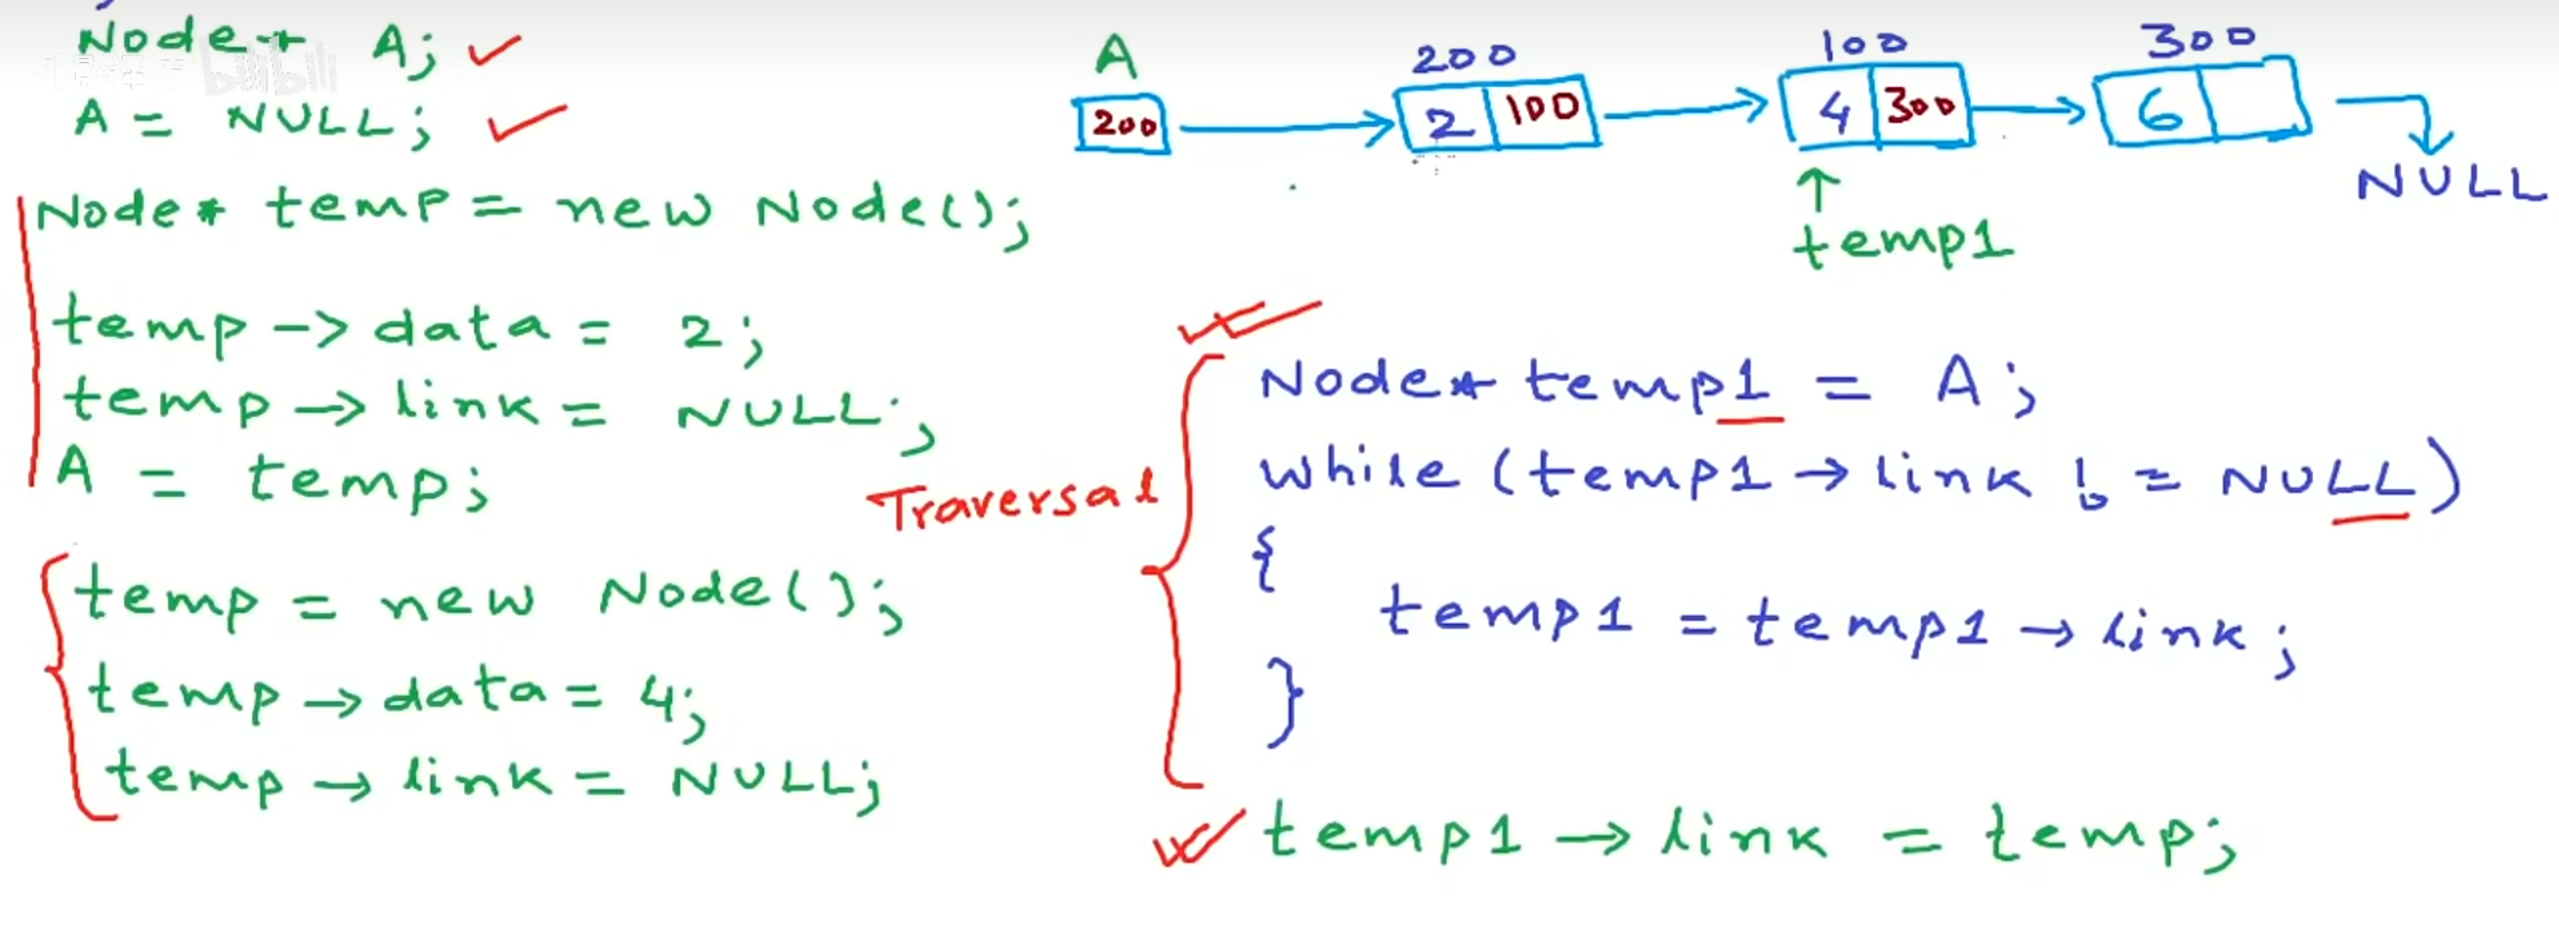 Node* A;
A = NULL;
Node* temp = new Node();
temp -> data = 2;
temp → link = NULL;
A = temp;
temp = new Node();
temp → data = 4;
temp → link = NULL;
A
200
200
2 100
100
4 300
300
6
NULL
temp1
Traversal
Node* temp1 = A;
while (temp1 → link != NULL)
{
temp1 = temp1 → link;
}
temp1 → link = temp;
bilibili